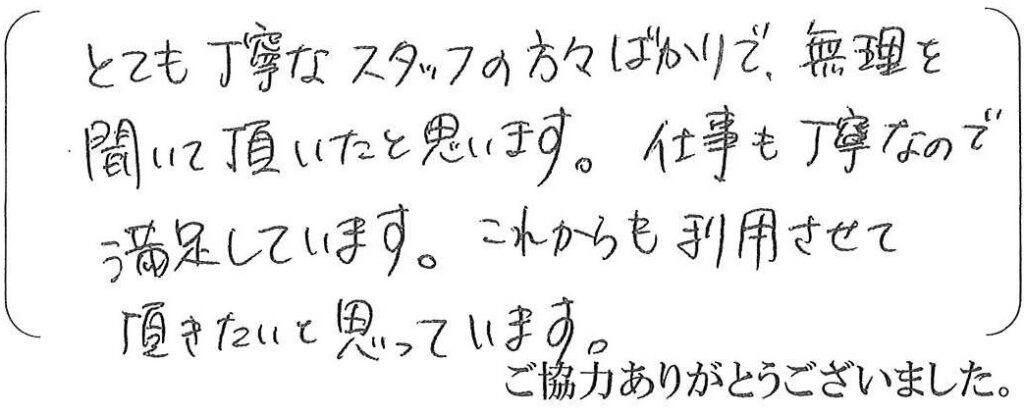 とても丁寧なスタッフの方々ばかりで、無理を
聞いて頂いたと思います。仕事も丁寧なので
満足しています。これからも利用させて
頂きたいと思っています。
ご協力ありがとうございました。